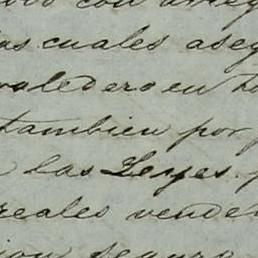 con
las cuales aseg
valedero en to
tambien por
las Leyes.
reales vende
seguro